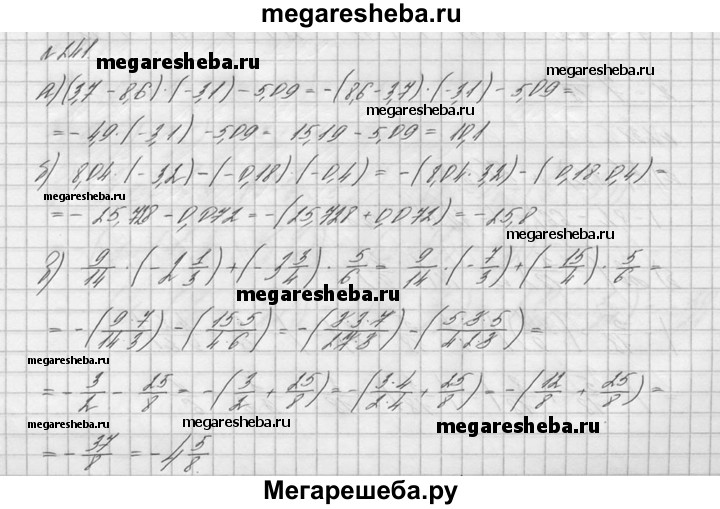 megaresheba.ru
№ 241
megaresheba.ru
megaresheba.ru
а) (3,7 − 8,6) · (−3,1) − 5,09 = −(8,6−3,7) · (−3,1) − 5,09 =
megaresheba.ru
= −4,9 · (−3,1) − 5,09 = 15,19 − 5,09 = 10,1
б) 8,04 · (−3,2) − (−0,18) · (−0,4) = −(8,04 · 3,2) − (0,18 · 0,4) =
megaresheba.ru
= −25,728 − 0,072 = −(25,728 + 0,072) = −25,8
megaresheba.ru
в) 9/14 · (−2 1/3) + (−3 3/4) · 5/6 = 9/14 · (−7/3) + (−15/4) · 5/6 =
megaresheba.ru
= −(9·7/14·3) − (15·5/4·6) = −(3·3·7/2·7·3) − (5·3·5/4·2·3) =
megaresheba.ru
megaresheba.ru
= −3/2 − 25/8 = −(3/2 + 25/8) = −(3·4/2·4 + 25/8) = −(12/8 + 25/8) =
megaresheba.ru
megaresheba.ru
megaresheba.ru
= −37/8 = −4 5/8
Мегарешеба.ру